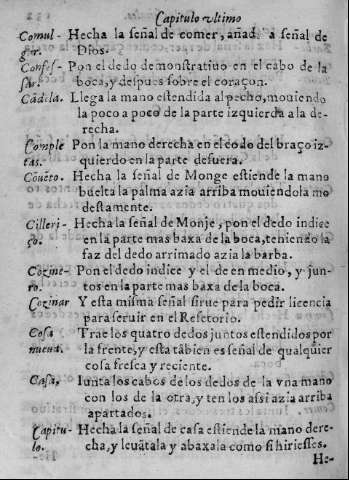 Capitulo vltimo
Comul- Hecha la señal de comer, añad. a señal de
gar. Dios.
Confes- Pon el dedo demonstratiuo en el cabo de la
sar. boca, y despues sobre el coraçon.
Cãdela. Llega la mano estendida al pecho, mouiendo
la poco a poco de la parte izquierda a la de-
recha.
Comple Pon la mano derecha en el codo del braço iz-
tas. quierdo en la parte defuera.
Conẽto. Hecha la señal de Monge estiende la mano
buelta la palma azia arriba mouiendola mo
destamente.
Cilleri- Hecha la señal de Monje, pon el dedo indice
ço. en la parte mas baxa de la boca, teniendo la
faz del dedo arrimado azia la barba.
Cozine- Pon el dedo indice y el de en medio, y jun-
ro. tos en la parte mas baxa de la boca.
Cozinar Y esta misma señal sirue para pedir licencia
para seruir en el Refetorio.
Cosa Trae los quatro dedos juntos estendidos por
nueua. la frente, y esta tãbien es señal de qualquier
cosa fresca y reciente.
Casa, Iunta los cabos de los dedos de la vna mano
con los de la otra, y ten los assi azia arriba
apartados.
Capitu- Hecha la señal de casa estiende la mano dere-
lo. cha, y leuãtala y abaxala como si hiriesses.
He-